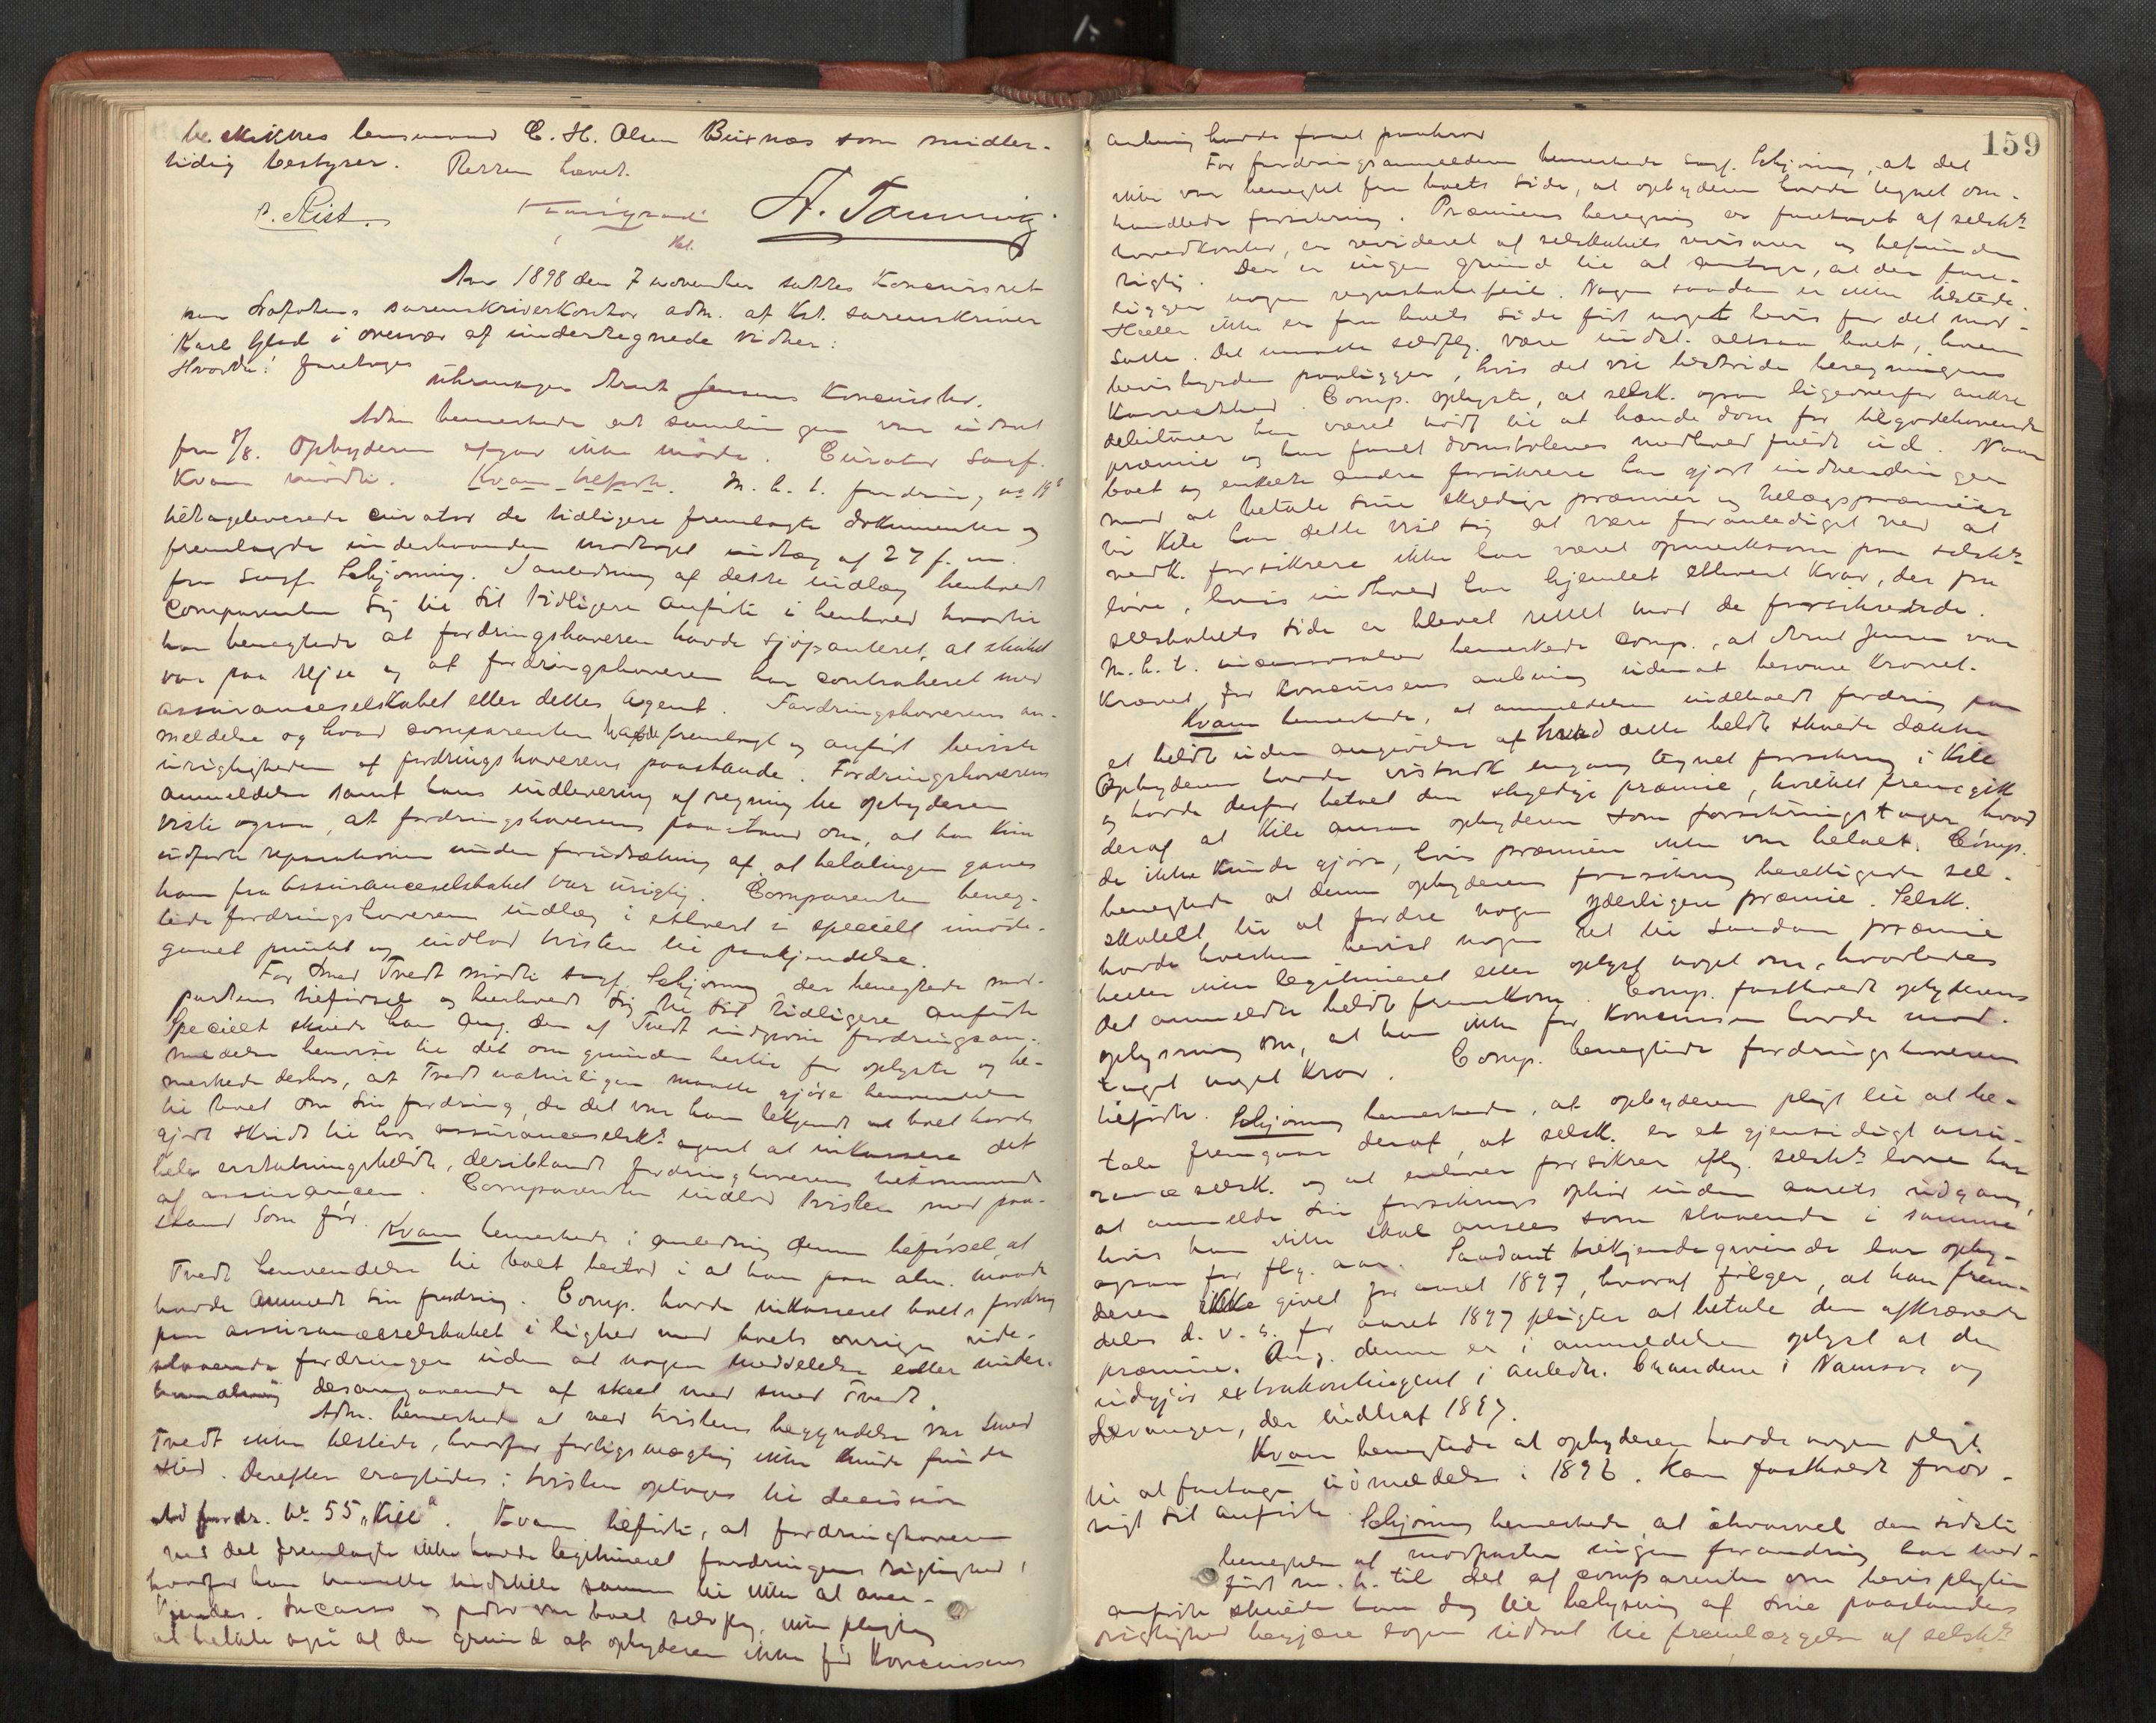 beskikkes lensmand C. H. Olsen Buxnæs som midler-
tidig bestyrer. Retten hævet.
A. Tønning
Kst.
Aar 1898 den 7 november sattes Konkursret
paa Lofotens sorenskriverkontor adm. af Kst. sorenskriver
Karl Glad i overvær af undertegnede vidner:
Hvorda! foretoges
Uhrmager Arnt Jensens Konkursbo.
Adm bemerkede at samlingen var udsat
fra 8/8. Opbyderen ikke mødte. Curator Sagf.
Kvam mødte. Kvam tilførte. M. h. t. fordring no 19
tilbageleverede curator de tidligere fremlagte dokumenter og
fremlagde underhaanden modtaget indlæg af 27 f. m.
fra Sagf. Schjøning. I anledning af dette indlæg henholdt
Comparenten sig til sit tidligere anførte i henhold hvortil
han benegtede at fordringshaveren havde sjøpanteret, at skibet
var paa rejse og at fordringshaveren har contraheret med
assuranceselskabet eller dettes agent. Fordringshaverens an-
meldelse og hvad comparenten havde fremlagt og anført beviste
urigtigheden af fordringshaverens paastande. Fordringshaverens
anmeldelse samt hans indlevering af regning til opbyderen
viste ogsaa, at fordringshaverens paastand om, at han kun
udførte reparationen under forudsætning af at betalingen gaves
ham fra Assuranceselskabet var urigtig. Comparenten beneg-
tede fordringshaverens indlæg i ethvert ei specielt imøde-
gaaet punkt og indlod tvisten til paakjendelse.
For smed Tvedt mødte sagf. Schjøning, der benegtede mod-
partens tilførsel og henholdt sig til sit tidligere anførte
Specielt skulde han ang. den af Tvedt indgivne fordringsan-
meldelse henvise til det om grunden hertil før oplyste og be-
merkede derhos, at Tvedt naturligvis maatte gjøre henvendelse
til boet om sin fordring, da det var ham bekjendt at boet havde
gjort skridt til hos assuranceselsk.s agent at inkassere det
hele erstatningsbeløb, deriblandt fordringhaverens tilkommende
af assurancen. Comparenten indlod tvisten med paa-
stand som før.
Kvam bemerkede i anledning denne tilførsel, at
Tvedts henvendelse til boet bestod i at han paa alm. maade
havde anmeldt sin fordring. Comp. havde inkasseret boets fordring
paa assuranceselskabet i lighed med boets øvrige ude-
staaende fordringer uden at nogen meddelelse eller under-
handling desangaaende af skeet med smed Tvedt.
Adm. bemerkede at ved tvistens begyndelse var smed
Tvedt ikke tilstede, hvorfor forligsmægling ikke kunde finde
sted. Derefter eragtedes: tvisten optages til decision
Ad fordr. No 55 „Kili“. Kvam tilførte, at fordringhaveren
ved det fremlagte ikke havde legitimeret fordringens rigtighed,
hvorfor han maatte indstille samme til ikke at aner-
kjendes. Incasso og porto var boet selvflg. ikke pligtig
at betale ogsaa af den grund at opbyderen ikke før Konkursens
159
aabning havde faaet paakrav
For fordringsanmelderen bemerkede sagf. Schjøning, at det
ikke var benegtet fra boets side, at opbyderen havde tegnet om-
handlede forsikring. Præmiens beregning er foretaget af selsk.s
hovedkontor, er revideret af selskabets revisorer og befunden
rigtig. Der er ingen grund til at antage, at der fore-
ligger nogen regnskabsfeil. Nogen saadan er ikke tilstede
Heller ikke er fra boets side ført noget bevis for det mod-
satte. Det maatte selvflg. være indst. altsaa boet, hvem
bevisbyrden paaligger, hvis det vil bestride beregningens
Korrekthed. Comp. oplyste, at selsk. ogsaa ligeoverfor andre
debitorer har været nødt til at hænde dom for tilgodehavende
præmie og har faaet domstolenes medhold fuldt ud. Naar
boet og enkelte andre forsikrere har gjort indvendinger
mod at betale sine skyldige præmier og tillægspræmier
til Kili har dette vist sig at være foranlediget ved at
vedk. forsikrere ikke har været opmerksom paa selsk.s
love, hvis indhold har hjemlet ethvert krav, der fra
selskabets side er blevet rettet mod de forsikrende.
M. h. t. incassosalær bemerkede comp., at Arnt Jensen var
Krævet før Konkursens aabning uden at besvare Kravet.
Kvam bemerkede, at anmeldelsen indeholdt fordring paa
et beløb uden angivelse af hvad dette beløb skulde dække
Opbyderen havde vistnok engang tegnet forsikring i Kili
og havde derfor betalt den skyldige præmie, hvilket fremgik
deraf at Kili ansaa opbyderen som forsikringstager, hvad
de ikke kunde gjøre, hvis præmien ikke var betalt. Comp.
benegtede at denne opbyderens forsikring berettigede sel-
skabet til at fordre nogen yderligere præmie. Selsk.
havde hverken bevist nogen ret til saadan præmie
heller ikke legitimeret eller oplyst noget om, hvorledes
det anmeldte beløb fremkom. Comp. fastholdt opbyderens
oplysning om, at han ikke før Konkursen havde mod-
taget noget Krav. Comp. benegtede fordringshaverens
tilførte. Schjøning bemerkede, at opbyderens pligt til at be-
tale fremgaar deraf, at selsk. er et gjensidigt assu-
ranceselsk. og at enhver forsikrer iflg. selsk.s love har
at anmelde sin forsikrings ophør inden aarets udgang,
hvis han ikke skal ansees som staaende i samme
ogsaa for flg. aar. Saadant tilkjendegivende har opby-
deren ikke givet for aaret 1897, hvoraf følger, at han frem-
deles d. v. s. for aaret 1897 pligter at betale den afkrævede
præmie. Ang. denne er i anmeldelsen oplyst at den
udgjør extrakontingent i anledn. brandene i Namsos og
Levanger, der indtraf 1897.
Kvam benegtede at opbyderen havde nogen pligt
til at foretage udmeldelse i 1896. Kam fastholdt forøv-
rigt sit anførte. Schjøning bemerkede, at ihvorvel den sidste
benegtelse af modparten ingen forandring har med-
ført m. h. til det af comparenten om bevispligten
anførte skulde han dog til belysning af sine paastandes
rigtighed begjære sagen udsat til fremlæggelse af selsk.s